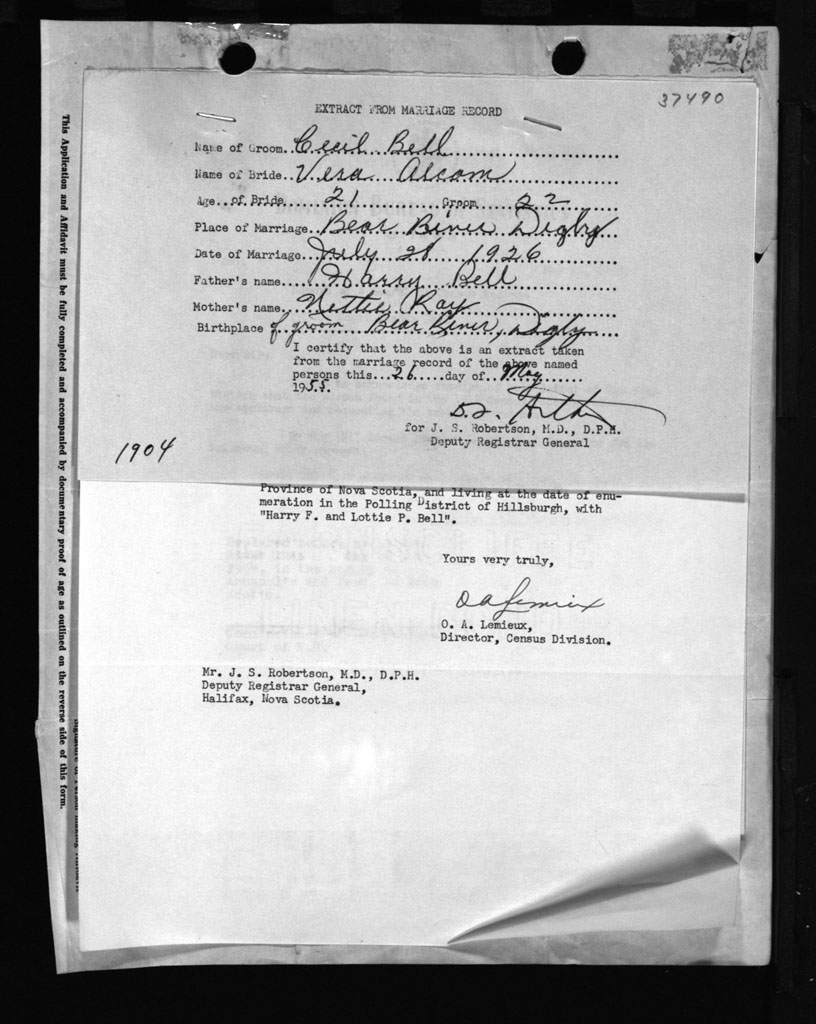 37490
EXTRACT FROM MARRIAGE RECORD
Name of Groom..Cecil Bell
Name of Bride..Vera Alcorn
Age of Bride 21 Groom 22
Place of Marriage Bear River Digby
Date of Marriage July 28 1926
Father's name Harry Bell
Mother's name Nettie Ray
Birthplace of groom Bear River, Digby
I certify that the above is an extract taken
from the marriage record of the above named
persons this 26 day of May
1955.
for J. S. Robertson, M.D., D.P.H.
Deputy Registrar General
1904
Province of Nova Scotia, and living at the date of enu-
meration in the Polling District of Hillsburgh, with
"Harry F. and Lottie P. Bell".
Yours very truly,
O A Lemieux
O. A. Lemieux,
Director, Census Division.
Mr. J. S. Robertson, M.D., D.P.H.
Deputy Registrar General,
Halifax, Nova Scotia.
This Application and Affidavit must be fully completed and accompanied by documentary proof of age as outlined on the reverse side of this form.